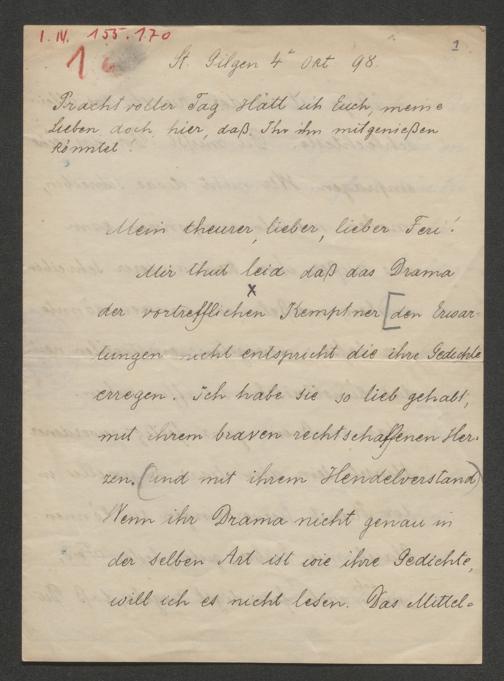 I. IV. 155.170
1
1
St. Gilgen 4t Okt 98.
Prachtvoller Tag Hätt ich Euch, meine
Lieben doch hier, daß Ihr ihn mitgenießen
könntet!
Mein theurer, lieber, lieber Feri!
Mir thut leid daß das Drama
x
der vortrefflichen Kemptner [den Erwar-
tungen nicht entspricht die ihre Gedichte
erregen. Ich habe sie so lieb gehabt,
mit ihrem braven rechtschaffenen Her-
zen. (und mit ihrem Hendelverstand)
Wenn ihr Drama nicht genau in
der selben Art ist wie ihre Gedichte,
will ich es nicht lesen. Das Mittel=